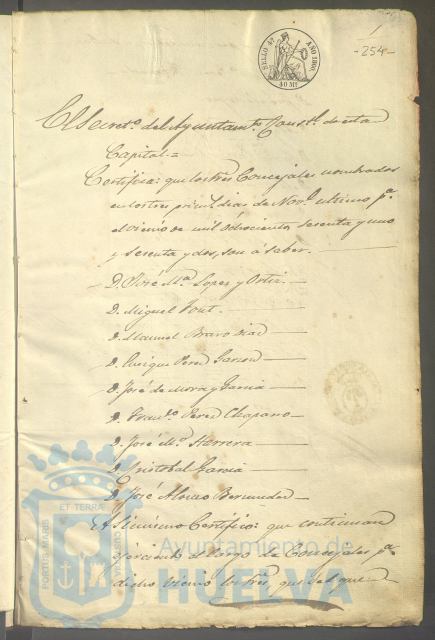 SELLO 4º AÑO 1860.
40 Ms
1
-254-
El Secretº del Ayuntamtº Constl de esta
Capital =
Certifica: que los tres Concejales nombrados
en los tres primeros dias de Novl ultimo pª
el vienio de mil ochocientos sesenta y uno
y sesenta y dos, son á saber.
D. José Mª Lopez y Ortiz
D. Miguel Font
D. Manuel Bravo Diaz
D. Enrique Perez Garzon
D. José de Mora y Garcia
D. Francº Perez Chaparro
D. José Mª Herrera
D. Cristobal Garcia
D. José Alonso Bermudez
Asimismo Certifico: que continuan
ejerciendo el cargo de Concejales pª
dicho vienio los tres, que del que
ET TERRÆ
PORTUS MARIS
CUSTODIA
Ayuntamiento de
HUELVA